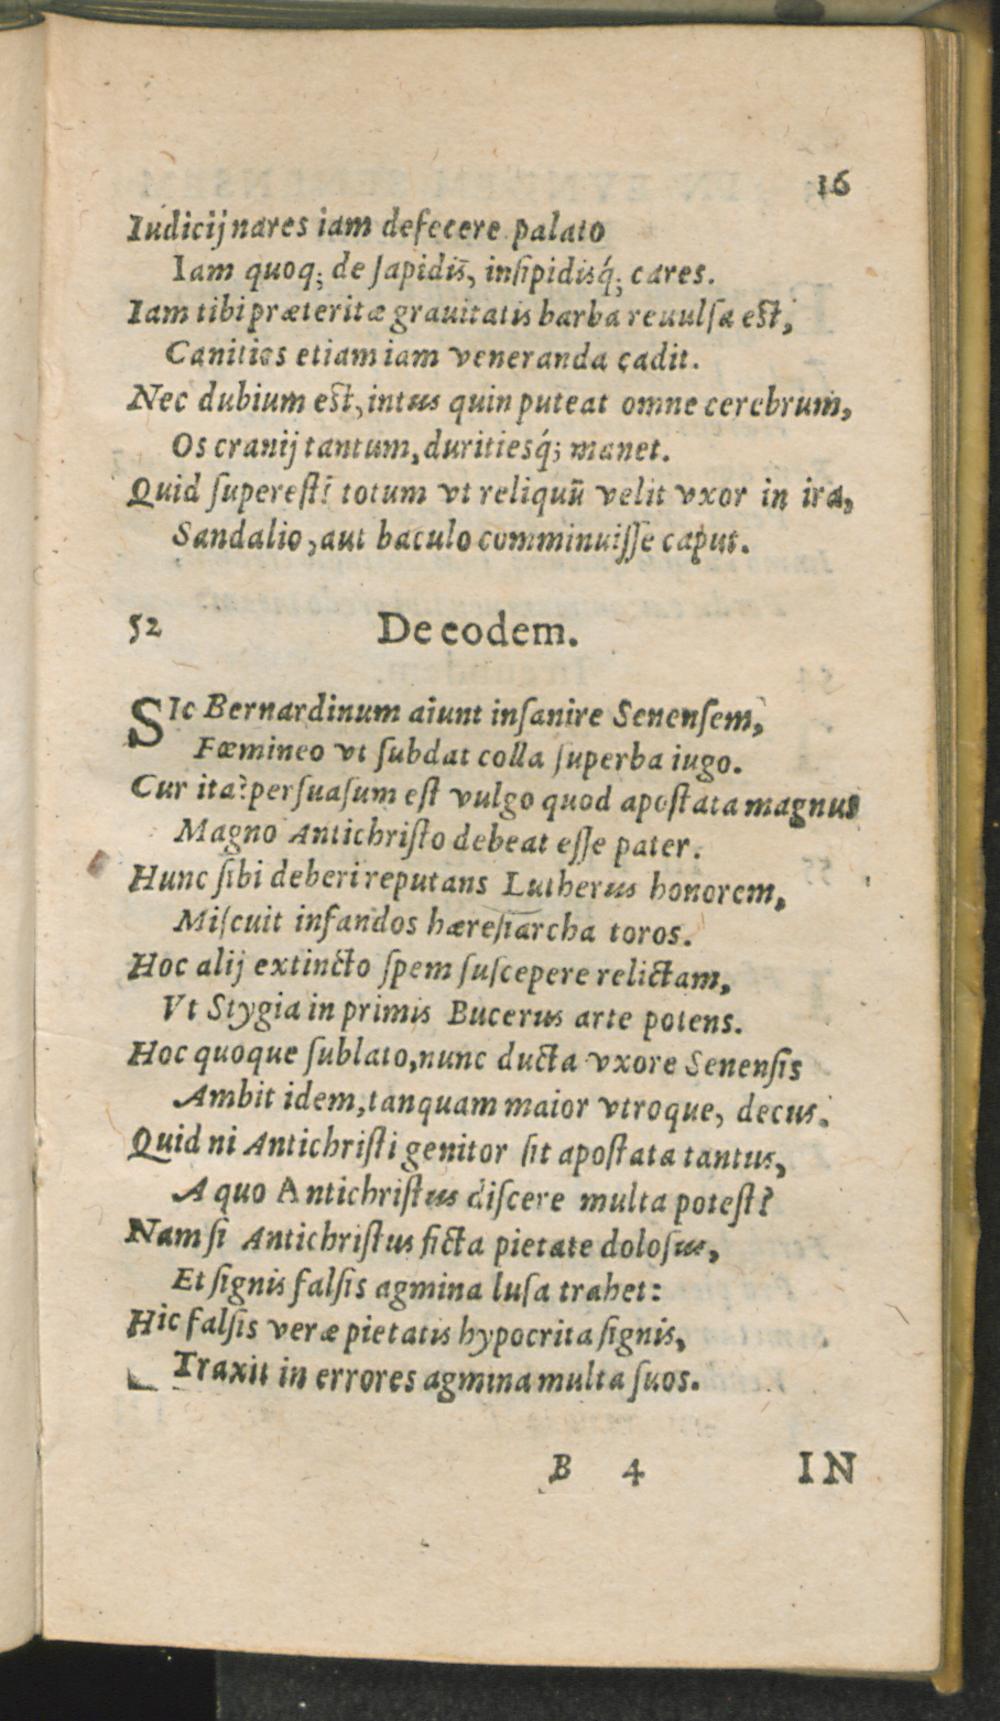 16
Iudicij nares iam defecere palato
Iam quoq; de sapidis̄, insipidisq́; cares.
Iam tibi præteritæ grauitatis barba reuulsa est,
Canities etiam iam veneranda cadit.
Nec dubium est, intus quin puteat omne cerebrum,
Os cranij tantum, duritiesq́; manet.
Quid superest? totum vt reliquū velit vxor in ira,
Sandalio, aut baculo comminuisse caput.
52 De eodem.
SIc Bernardinum aiunt insanire Senensem,
Fœmineo vt subdat colla superba iugo.
Cur ita? persuasum est vulgo quod apostata magnus
Magno Antichristo debeat esse pater.
Hunc sibi deberi reputans Lutherus honorem,
Miscuit infandos hæresiarcha toros.
Hoc alij extincto spem suscepere relictam,
Vt Stygia in primis Bucerus arte potens.
Hoc quoque sublato, nunc ducta vxore Senensis
Ambit idem, tanquam maior vtroque, decus.
Quid ni Antichristi genitor sit apostata tantus,
A quo Antichristus discere multa potest?
Nam si Antichristus ficta pietate dolosus,
Et signis falsis agmina lusa trahet:
Hic falsis veræ pietatis hypocrita signis,
Traxit in errores agmina multa suos.
B 4 IN